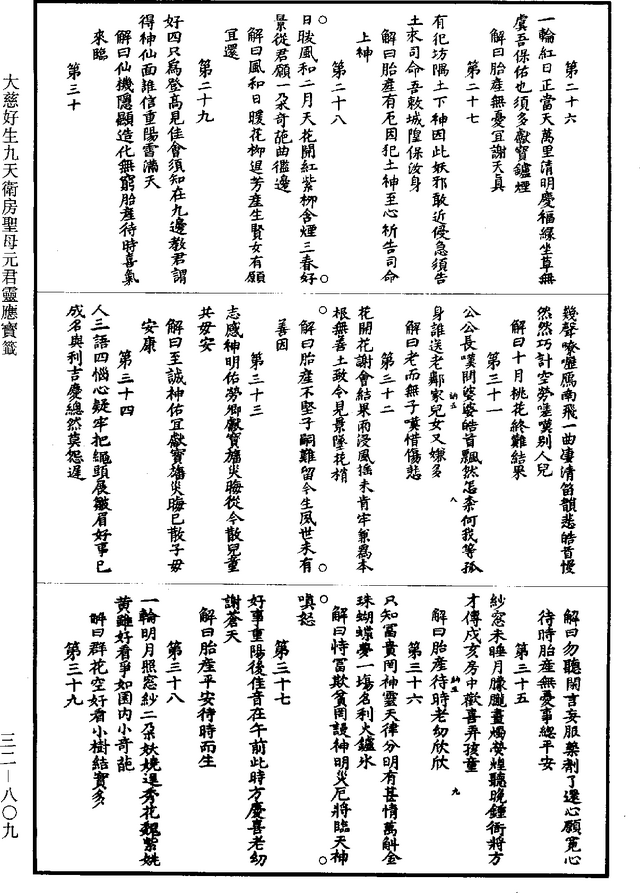 第二十六
一輪紅日正當天萬里清明慶福緣坐草無
虞吾保佑也須多獻寶鑪煙
解曰胎產無憂宜謝天真
第二十七
有犯坊隅土下神因此妖邪敢近侵急須告
土求司命吾敕城隍保汝身
解曰胎產有厄因犯土神至心祈告司命
上神
第二十八
日暖風和二月天花開紅紫柳含煙三春好
景從君願一朵奇葩曲檻邊
解曰風和日暖花柳逞芳產生賢女有願
宜還
第二十九
好四只為登高見佳會須知在九邊教君謂
得神仙面誰信重陽雪滿天
解曰仙機隱顯造化無窮胎產待時喜氣
來臨
第三十
幾聲嘹嚦鴈南飛一曲凄清笛韻悲皓首慢
然然巧計空勞嗟嘆別人兒
解曰十月桃花終難結果
第三十一
公公長嘆問婆婆皓首飄然怎柰何我等孤
身誰送老鄰家兒女又嫌多
解曰老而無子嘆惜傷悲
第三十二
花開花謝會結果雨浸風搖未肯牢兼為本
根無善土致令見景墜花梢
解曰胎產不堅子嗣難留今生夙世未有
善因
第三十三
志感神明佑勞卿獻寶旛災晦從今散兒童
共母安
解曰至誠神佑宜獻寶旛災晦已散子母
安康
第三十四
人三語四惱心疑牢把繩頭展皺眉好事已
成名與利吉慶總然莫怨遲
解曰勿聽閑言妄服藥劑了還心願寬心
待時胎產無憂事總平安
第三十五
紗窓未睡月朦朧畫燭熒煌聽晚鍾衙將方
才傳戌亥房中歡喜弄孩童
解曰胎產待時老幼欣欣
第三十六
只知富貴罔神靈天律分明有甚情萬斛金
珠蝴蝶夢一塲名利火鑪氷
解曰恃富欺貧罔謾神明災厄將臨天神
嗔怒
第三十七
好事重陽後佳音在午前此時方慶喜老幼
謝蒼天
解曰胎產平安待時而生
第三十八
一輪明月照窓紗二朵妖嬈逞秀花魏紫姚
黄雖好看爭如園内小奇葩
解曰群花空好看小樹結實多
第三十九
大慈好生九天衛房聖母元君靈應寶籤
三二一—八〇九